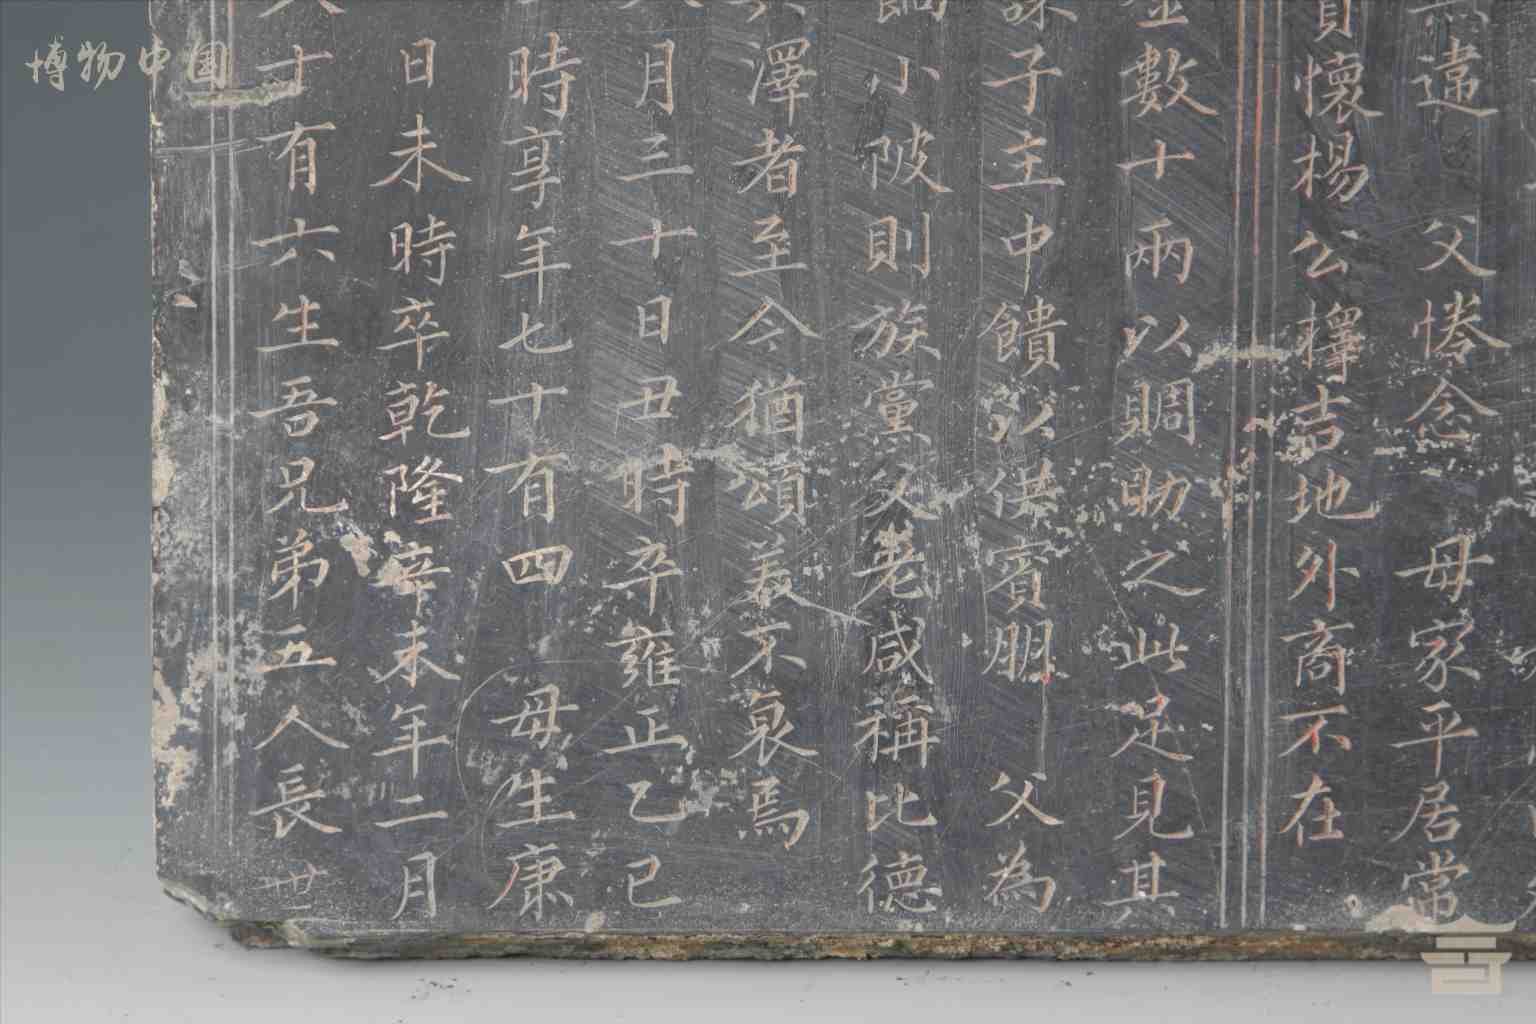 違 父惓念 母家平居當
懷楊公擇吉地外商不在
數十兩以賙助之此足見其
子主中饋以供賓朋 父為
小陂則族黨父老咸稱比德
澤者至今猶頌義不衰焉
月三十日丑時卒雍正乙已
時享年七十有四 母生康
日未時卒乾隆辛未年二月
十有六生吾兄弟五人長世
博物中国